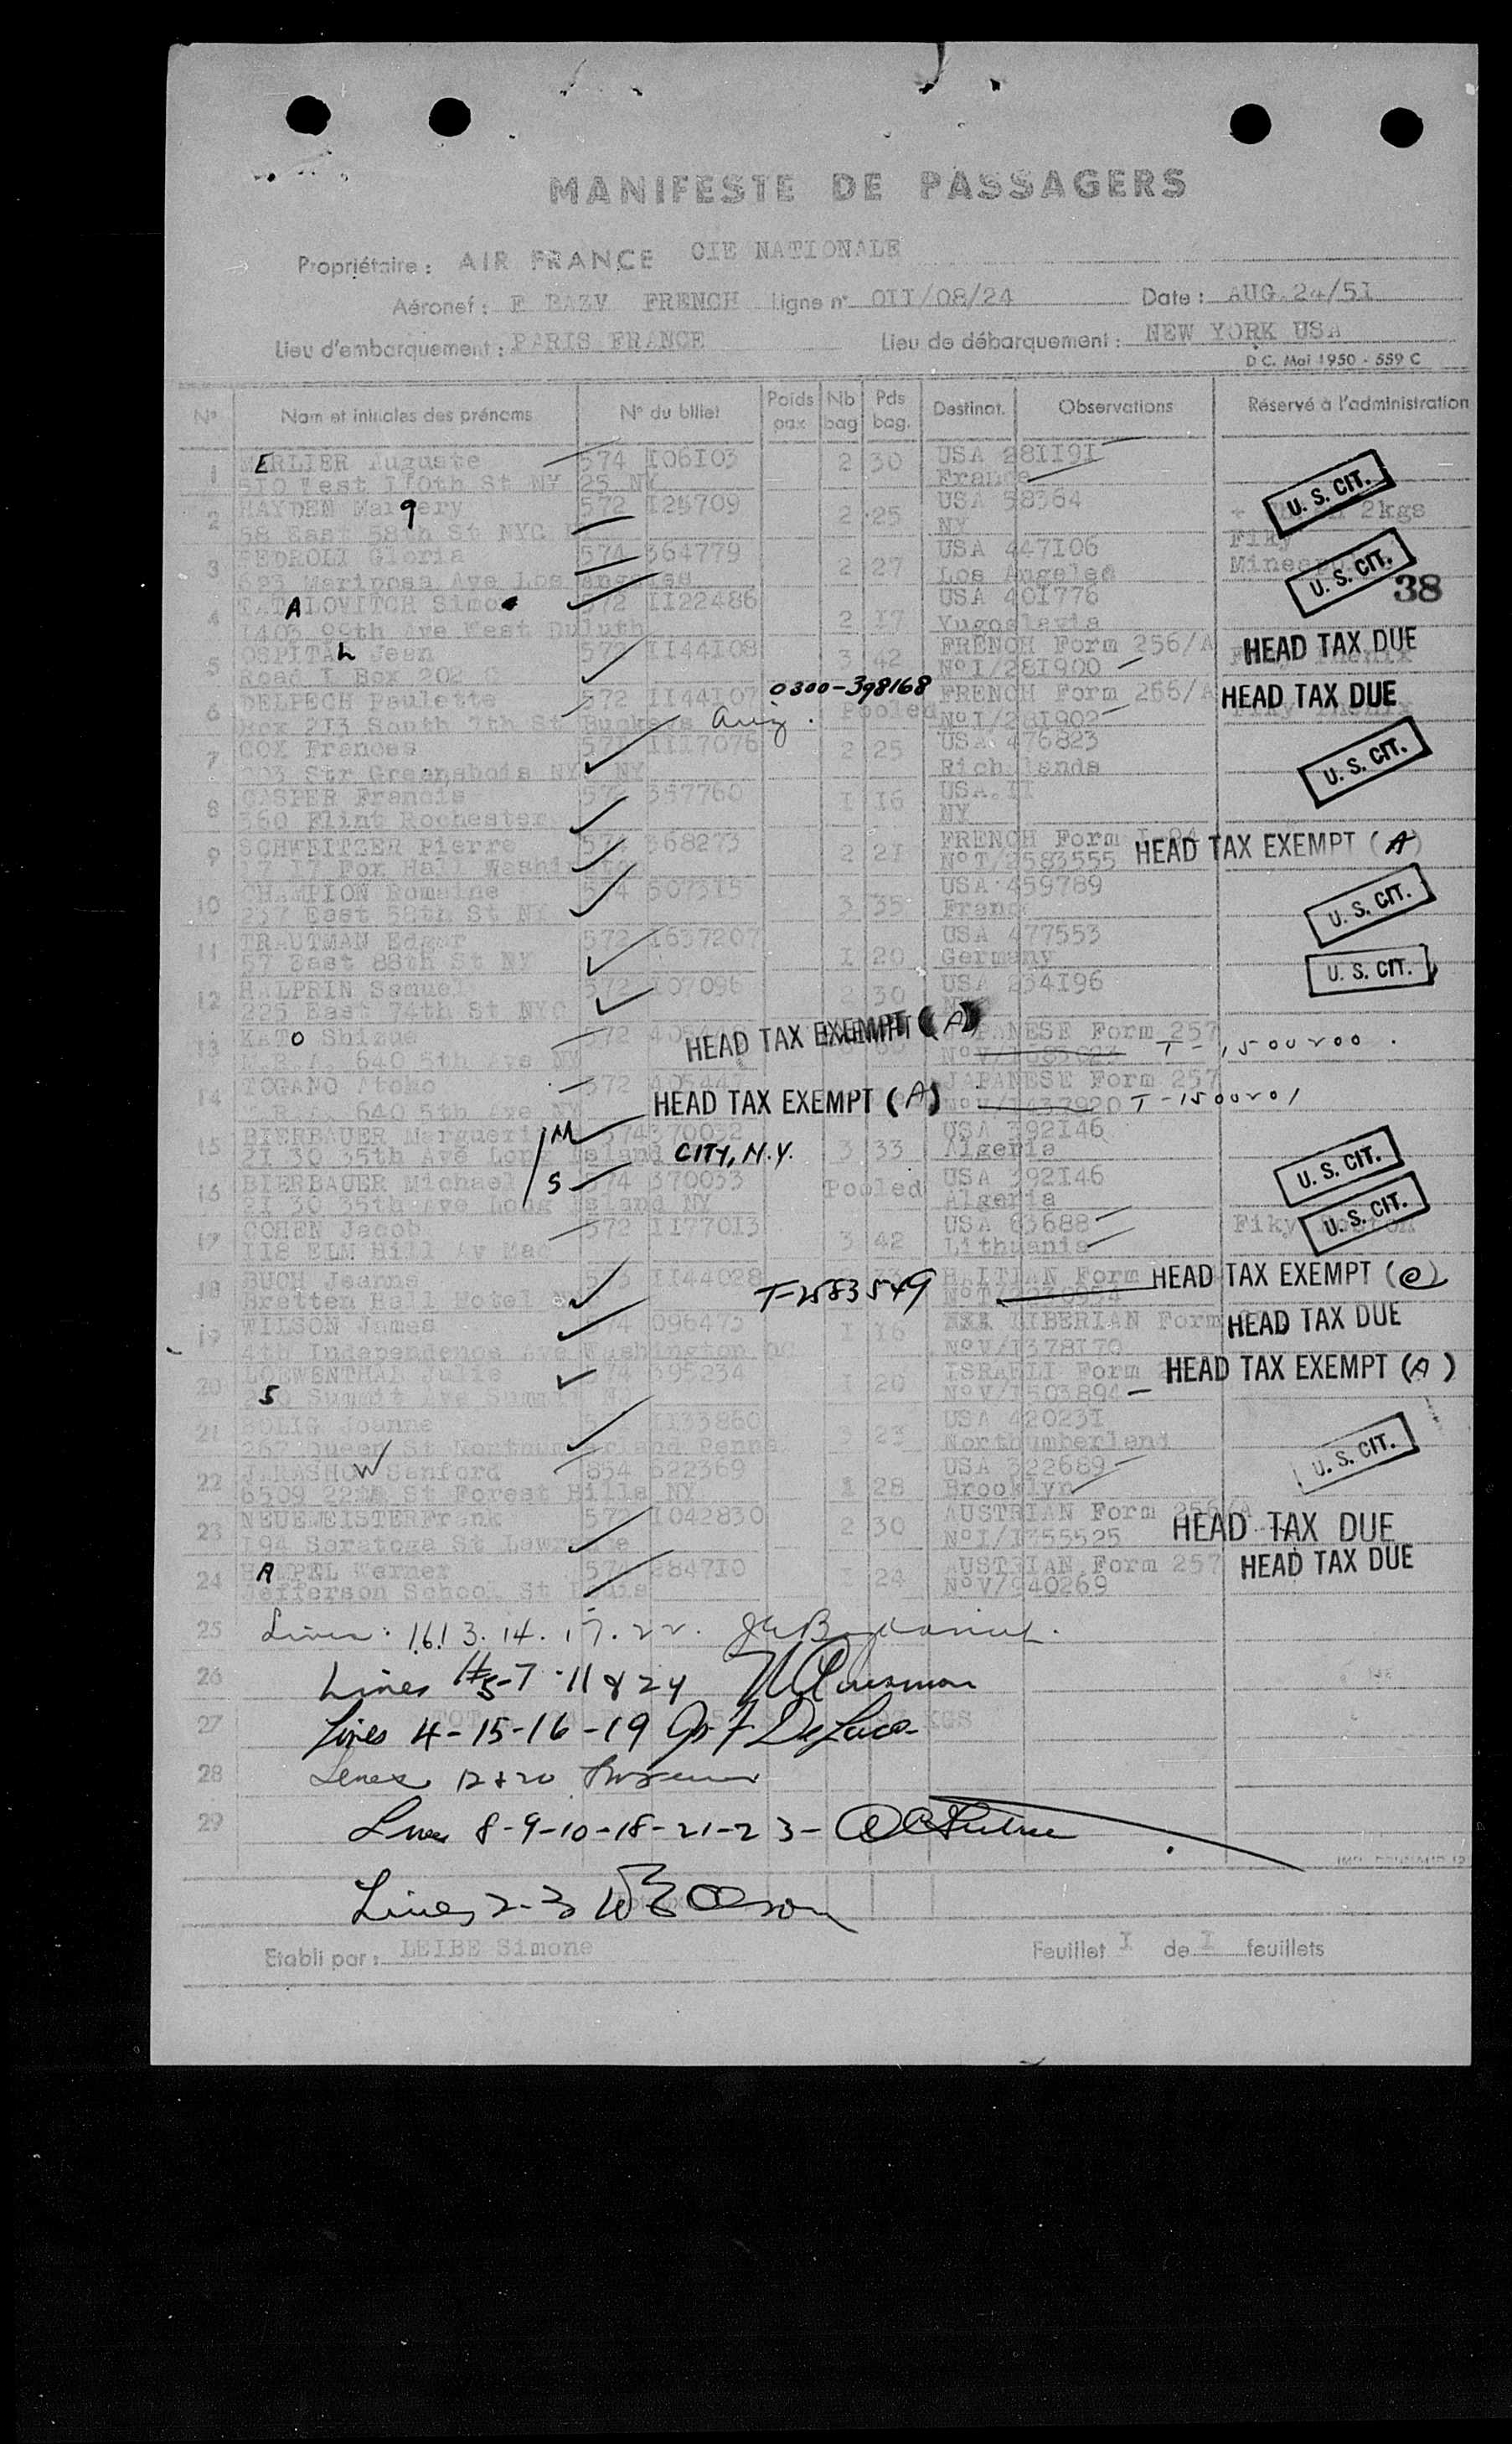 MANIFESTE DE PASSAGERS
Propriétaire : AIR FRANCE CIE NATIONALE
Aéronef : F BAZV FRENCH Ligne n° 011/08/24 Date : AUG.24/51
Lieu d'embarquement : PARIS FRANCE Lieu de débarquement : NEW YORK USA
D C. Mai 1950 - 559 C
N° Nom et initiales des prénoms N° du billet Poids pax Nb bag Pds bag. Destinat. Observations Réservé à l'administration
1 MERLIER Auguste 574 106103 2 30 USA 281191
510 West 110th St NY 25 NY France
U. S. CIT.
2 HAYDEN Margery 572 125709 2 25 USA 58364
58 East 58th St NYC NY 2kgs
3 PEDROLI Gloria 574 364779 2 27 USA 447106 Fiky
623 Mariposa Ave Los Angeles Los Angeles
U. S. CIT.
38
4 TATALOVITCH Simo 572 1122486 2 17 USA 401776
1403 99th Ave West Duluth Yugoslavia
5 OSPITAL Jean 572 1144108 3 42 FRENCH Form 256/A HEAD TAX DUE
Road I Box 202 C N°I/281900
6 DELPECH Paulette 572 1144107 0300-398168 FRENCH Form 256/A HEAD TAX DUE
Box 213 South 7th St Buckeys Ariz. Pooled N°I/281902
7 COX Frances 571 1117076 2 25 USA 476823
Str Greensbois NY NY Rich lands
U. S. CIT.
8 CASPER Francis 572 357760 1 16 USA.II
360 Flint Rochester NY
9 SCHWEITZER Pierre 574 368273 2 21 FRENCH Form I-94
17 17 Fox Hall Washington N°T/2583555 HEAD TAX EXEMPT (A)
10 CHAMPION Romaine 574 307315 3 35 USA 459789
237 East 58th St NY France
U. S. CIT.
11 TRAUTMAN Edgar 572 1637207 1 20 USA 477553
57 East 88th St NY Germany
U. S. CIT.
12 HALPRIN Samuel 572 107096 2 30 USA 234196
225 East 74th St NYC
13 KATO Shizue 572 HEAD TAX EXEMPT (A) JAPANESE Form 257
M.R.A. 640 5th Ave NY T-1500200.
14 TOGANO Atoko 572 JAPANESE Form 257
M.R.A. 640 5th Ave NY HEAD TAX EXEMPT (A) T-1500201
15 BIERBAUER Marguerite M 574 370032 3 33 USA 392146
21 30 35th Ave Long Island CITY, N.Y. Algeria
U. S. CIT.
16 BIERBAUER Michael S 574 370033 Pooled USA 392146
21 30 35th Ave Long Island NY Algeria
U. S. CIT.
17 COHEN Jacob 572 1177013 3 42 USA 63688 Fiky Boston
118 ELM Hill Av Mac Lithuania
18 BUCH Jeanne 1144028 HAITIAN Form HEAD TAX EXEMPT (C)
Bretten Hall Hotel NY T-2583549
19 WILSON James 574 096473 1 16 LIBERIAN Form HEAD TAX DUE
4th Independence Ave Washington DC N°V/1378170
20 LOEWENTHAL Julie 574 395234 1 20 ISRAELI Form HEAD TAX EXEMPT (A)
250 Summit Ave Summit NJ N°V/1503894
21 BOLIG Joanne 1133860 USA 420231
267 Queen St Northumberland Penna Northumberland
U. S. CIT.
22 JARASHOW Sanford 854 622369 1 28 USA 322689
6509 22th St Forest Hills NY Brooklyn
23 NEUEMEISTER Frank 572 1042830 2 30 AUSTRIAN Form 256/A
194 Saratoga St Lawrence N°I/1355525 HEAD TAX DUE
24 HAMPEL Werner 574 284710 1 24 AUSTRIAN Form 257 HEAD TAX DUE
Jefferson School St Louis N°V/940269
25 Lines: 1.6.13.14.17.22.
26 Lines #5-7-11 & 24
27 Lines 4-15-16-19
28 Lines 12 & 20
29 Lines 8-9-10-18-21-23-
Lines 2-3 Olson
Etabli par : LEIBE Simone Feuillet I de I feuillets